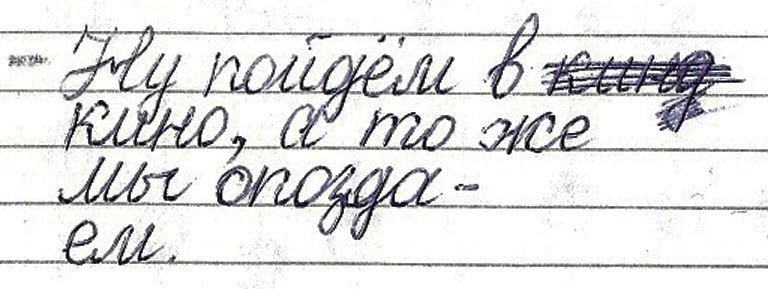 - Ну пойдём в
кино, а то же
мы опозда-
ем.